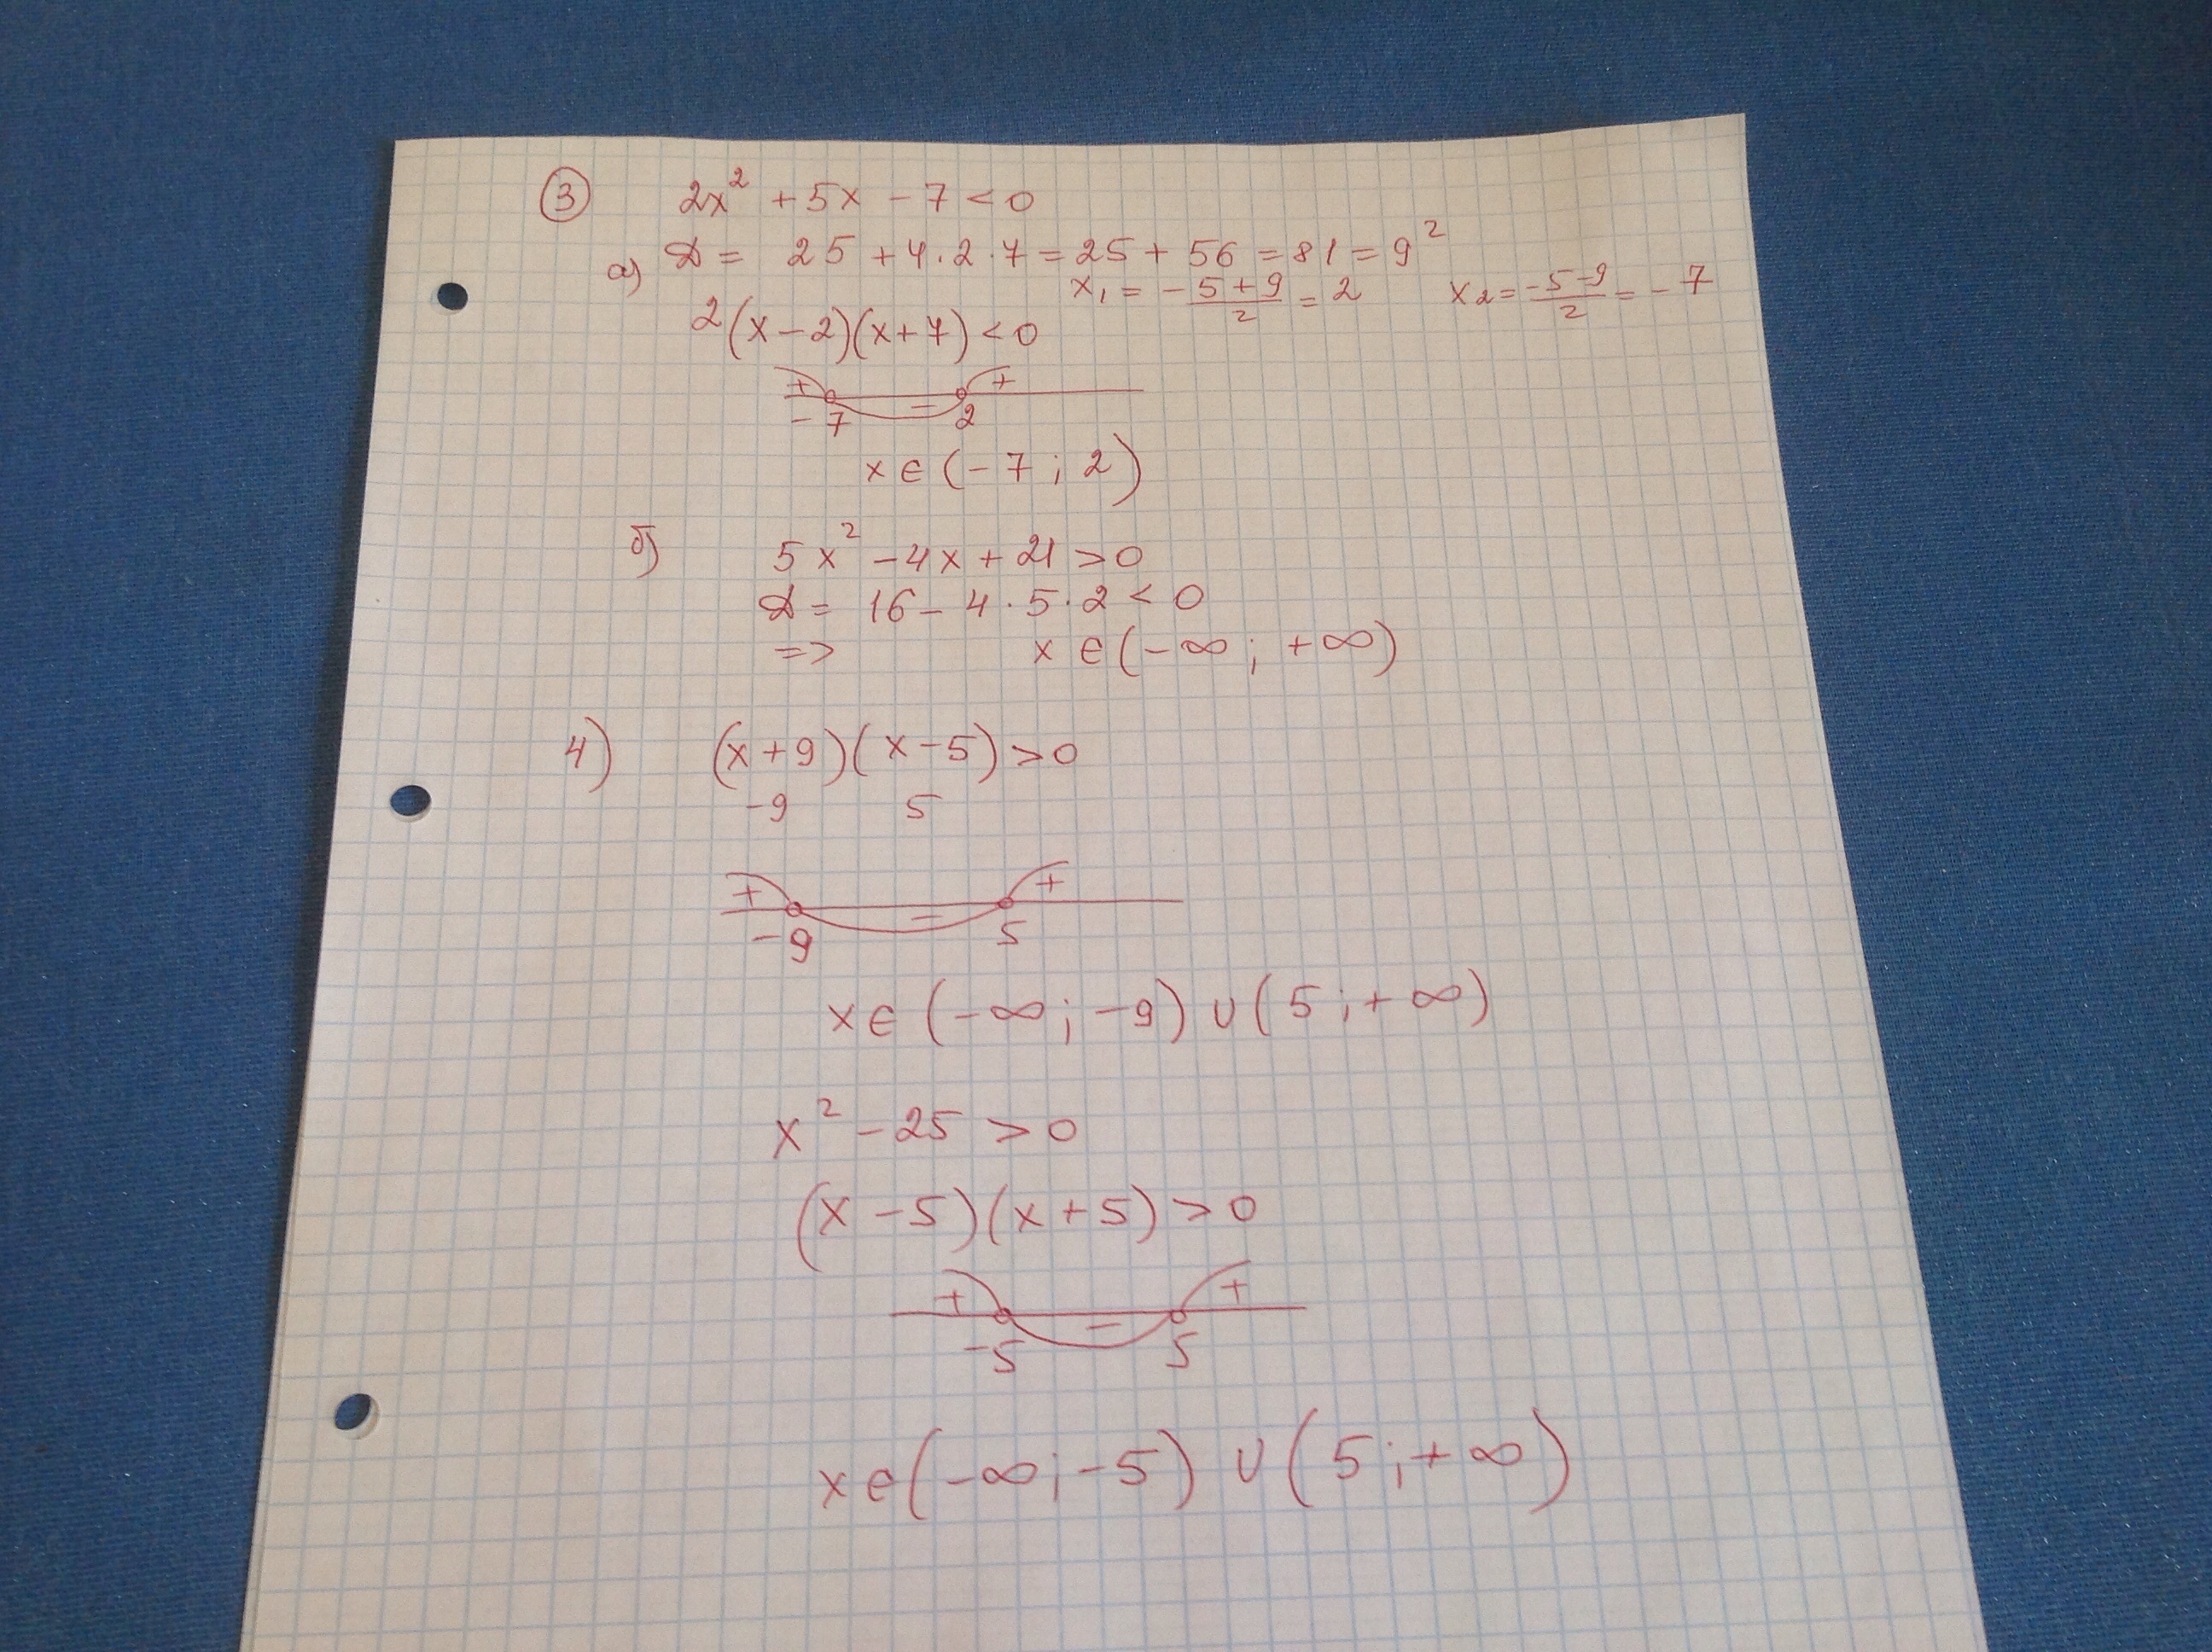 ③ 2x² + 5x - 7 < 0
а) D = 25 + 4·2·7 = 25 + 56 = 81 = 9²
x₁ = -5+9/2 = 2 x₂ = -5-9/2 = -7
2(x-2)(x+7) < 0
+ - +
-7 2
x ∈ (-7; 2)
б) 5x² - 4x + 21 > 0
D = 16 - 4·5·2 < 0
=> x ∈ (-∞; +∞)
4) (x+9)(x-5) > 0
-9 5
+ - +
-9 5
x ∈ (-∞; -9) ∪ (5; +∞)
x² - 25 > 0
(x-5)(x+5) > 0
+ - +
-5 5
x ∈ (-∞; -5) ∪ (5; +∞)